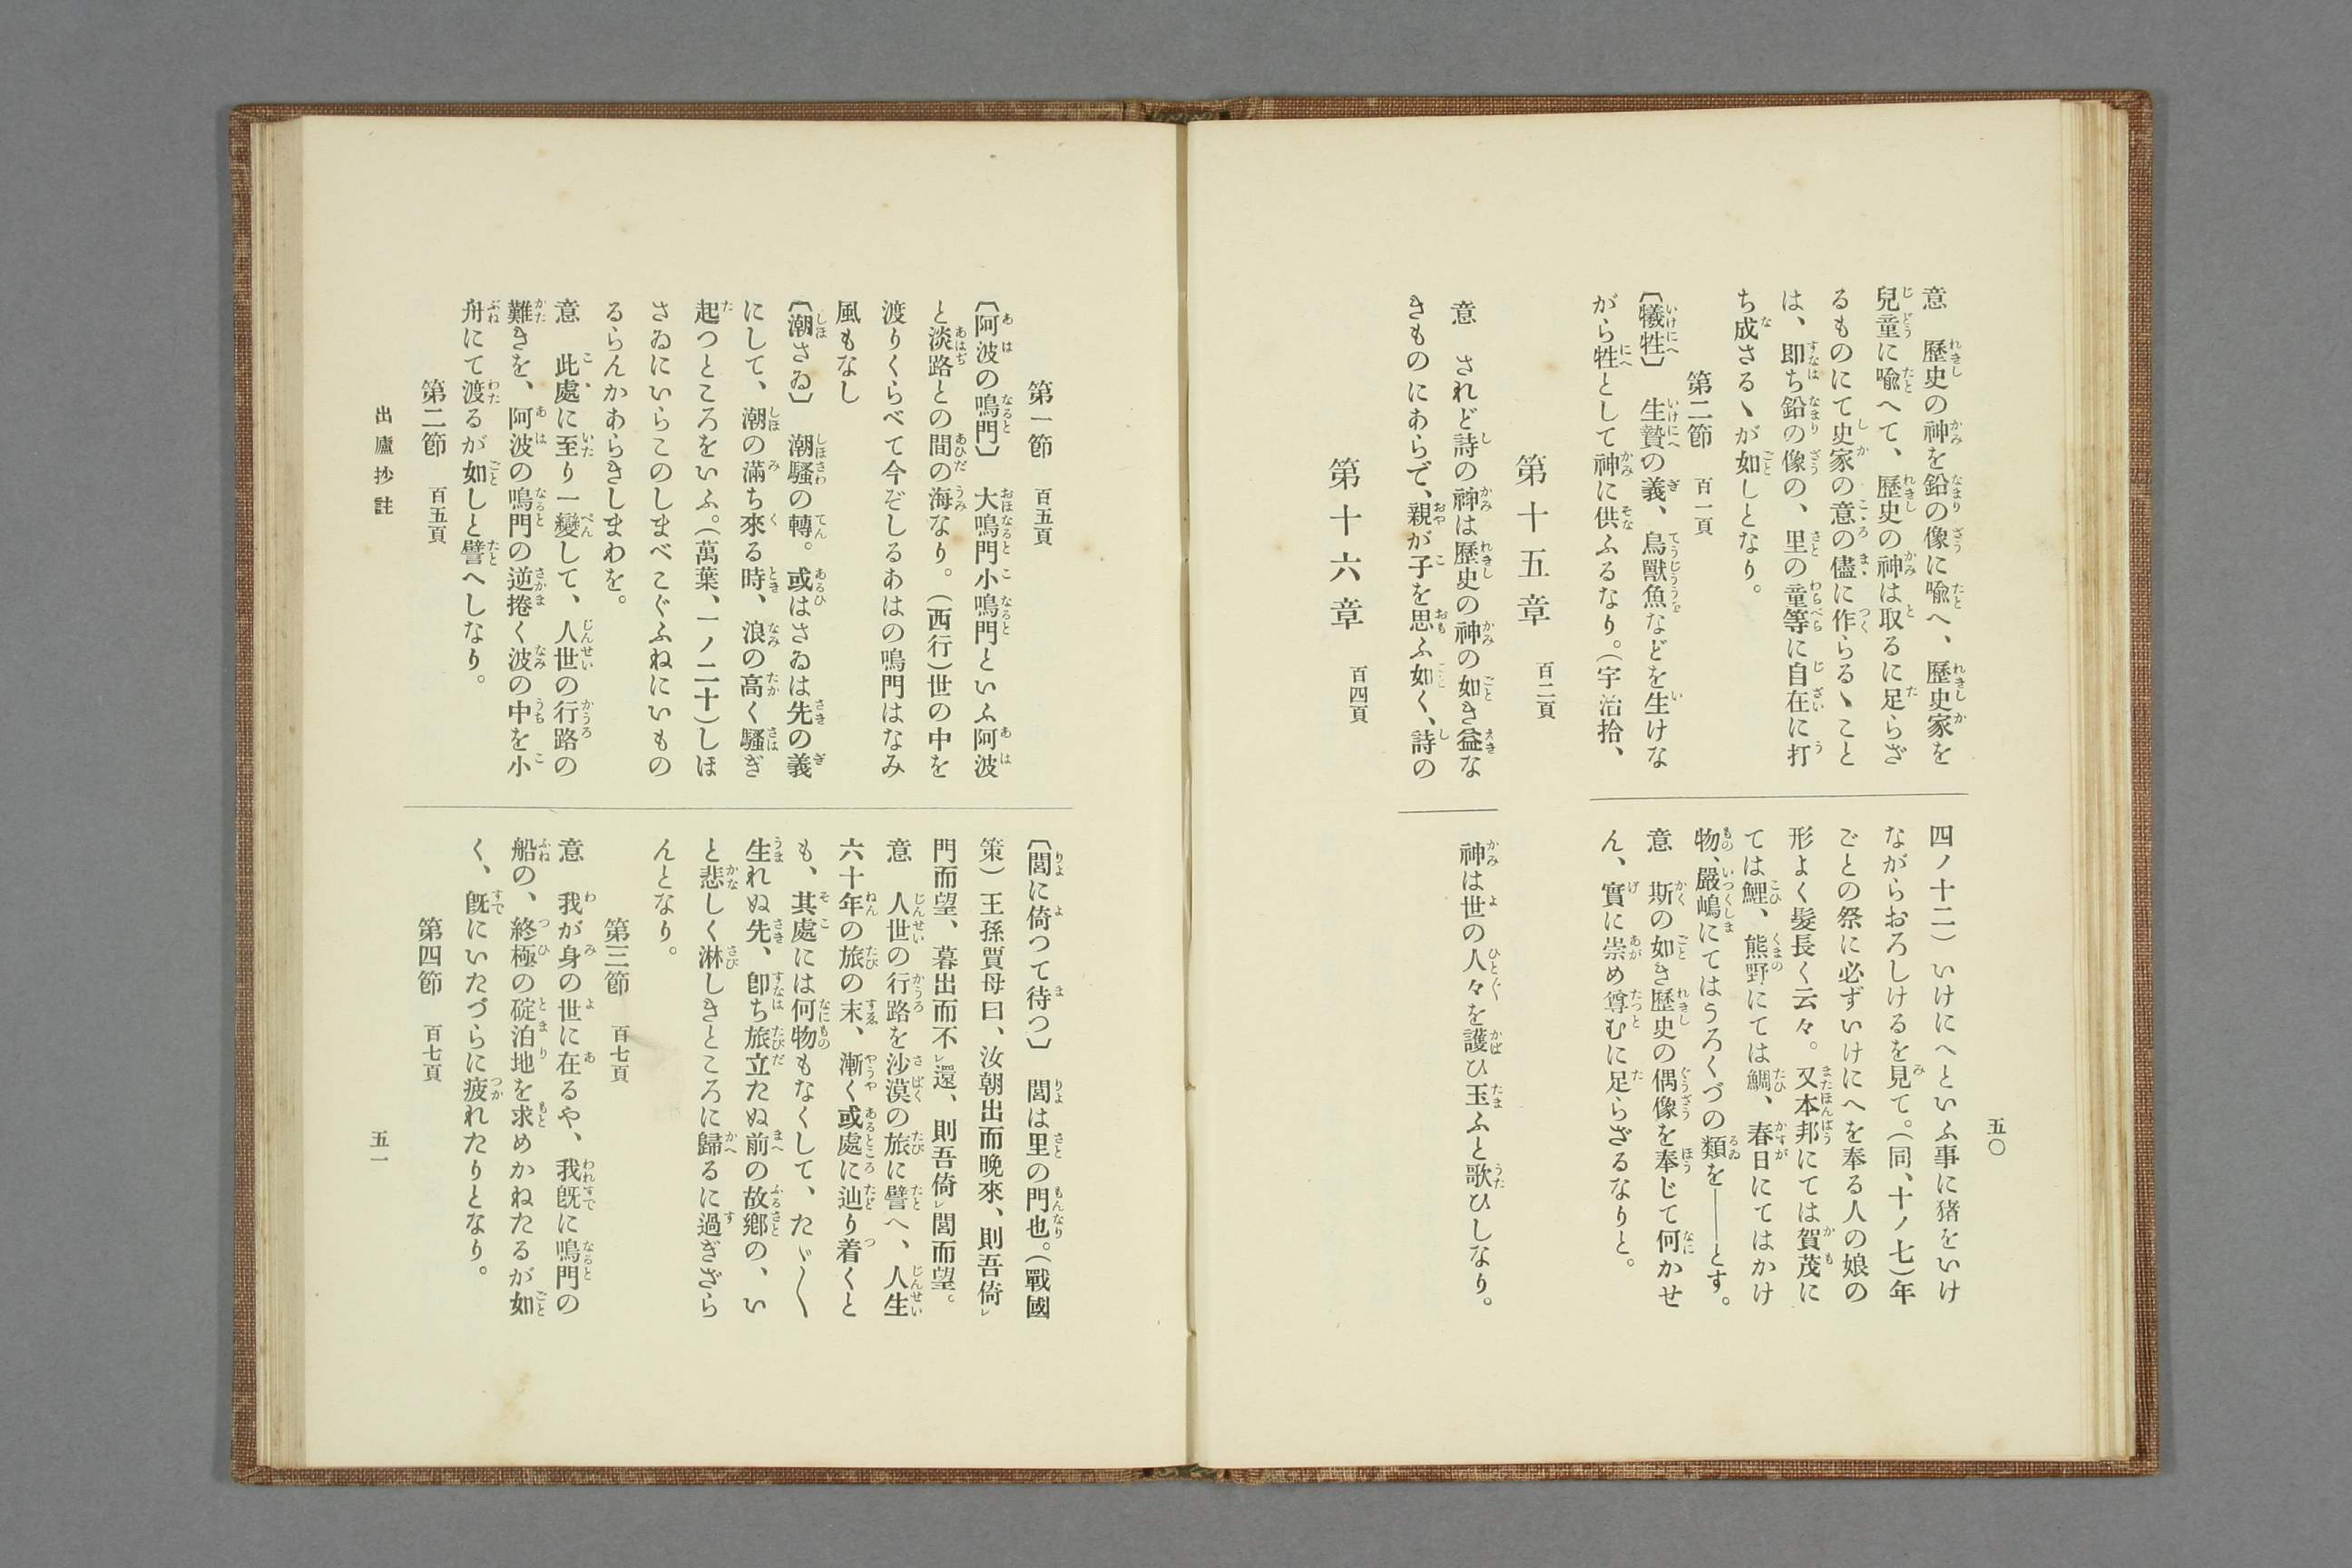 意　歷史の神を鉛の像に喩へ、歷史家を
兒童に喩へて、歷史の神は取るに足らざ
るものにて史家の意の儘に作らるゝこと
は、即ち鉛の像の、里の童等に自在に打
ち成さるゝが如しとなり。
第二節　百一頁
〔犧牲〕　生贄の義、鳥獸魚などを生けな
がら牲として神に供ふるなり。（宇治拾、
四ノ十二）いけにへといふ事に猪をいけ
ながらおろしけるを見て。（同、十ノ七）年
ごとの祭に必ずいけにへを奉る人の娘の
形よく髮長く云々。又本邦にては賀茂に
ては鯉、熊野にては鯛、春日にてはかけ
物、嚴嶋にてはうろくづの類を――とす。
意　斯の如き歷史の偶像を奉じて何かせ
ん、實に崇め尊むに足らざるなりと。
第十五章　百二頁
意　されど詩の神は歷史の神の如き益な
きものにあらで、親が子を思ふ如く、詩の
神は世の人々を護ひ玉ふと歌ひしなり。
第十六章　百四頁
五〇
第一節　百五頁
〔阿波の鳴門〕　大鳴門小鳴門といふ阿波
と淡路との間の海なり。（西行）世の中を
渡りくらべて今ぞしるあはの鳴門はなみ
風もなし
〔潮さゐ〕　潮騷の轉。或はさゐは先の義
にして、潮の滿ち來る時、浪の高く騷ぎ
起つところをいふ。（萬葉、一ノ二十）しほ
さゐにいらこのしまべこぐふねにいもの
るらんかあらきしまわを。
意　此處に至り一變して、人世の行路の
難きを、阿波の鳴門の逆捲く波の中を小
舟にて渡るが如しと譬へしなり。
第二節　百五頁
〔閭に倚つて待つ〕　閭は里の門也。（戰國
策）王孫賈母曰、汝朝出而晚來、則吾倚レ
門而望、暮出而不レ還、則吾倚レ閭而望。
意　人世の行路を沙漠の旅に譬へ、人生
六十年の旅の末、漸く或處に辿り着くと
も、其處には何物もなくして、たゞ〳〵
生れぬ先、卽ち旅立たぬ前の故鄕の、い
と悲しく淋しきところに歸るに過ぎざら
んとなり。
第三節　百七頁
意　我が身の世に在るや、我旣に鳴門の
船の、終極の碇泊地を求めかねたるが如
く、旣にいたづらに疲れたりとなり。
第四節　百七頁
出廬抄註
五一